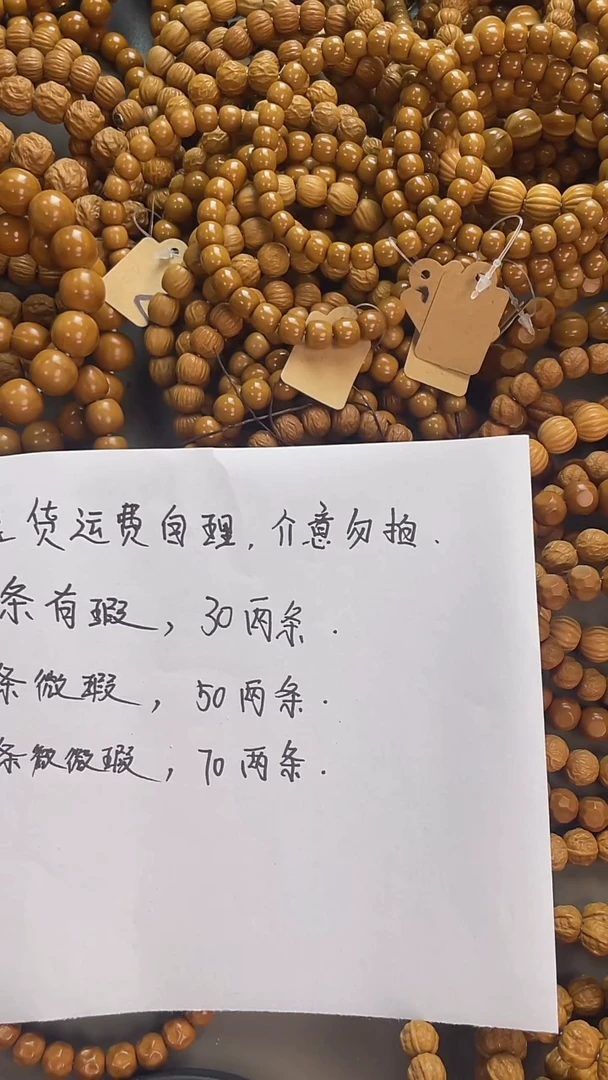 货运费自理，介意勿拍．
条有瑕，30两条．
条微瑕，50两条．
条微微瑕，70两条．